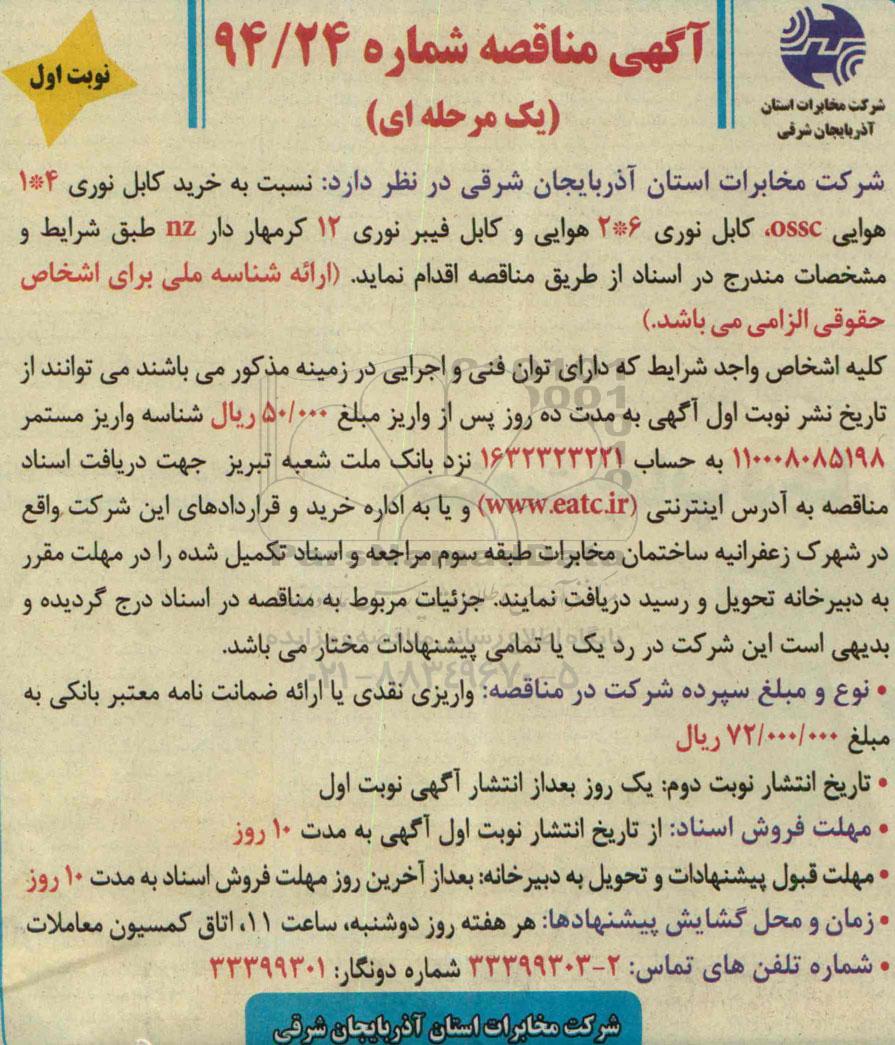 شرکت مخابرات استان
آذربایجان شرقی
آگهی مناقصه شماره ۹۴/۲۴
(یک مرحله ای)
نوبت اول
شرکت مخابرات استان آذربایجان شرقی در نظر دارد: نسبت به خرید کابل نوری ۴*۱
هوایی ossc، کابل نوری ۶*۲ هوایی و کابل فیبر نوری ۱۲ کرمهار دار nz طبق شرایط و
مشخصات مندرج در اسناد از طریق مناقصه اقدام نماید. (ارائه شناسه ملی برای اشخاص
حقوقی الزامی می باشد.)
کلیه اشخاص واجد شرایط که دارای توان فنی و اجرایی در زمینه مذکور می باشند می توانند از
تاریخ نشر نوبت اول آگهی به مدت ده روز پس از واریز مبلغ ۵۰/۰۰۰ ریال شناسه واریز مستمر
۱۱۰۰۰۸۰۸۵۱۹۸ به حساب ۱۶۳۲۳۲۳۲۲۱ نزد بانک ملت شعبه تبریز جهت دریافت اسناد
مناقصه به آدرس اینترنتی (www.eatc.ir) و یا به اداره خرید و قراردادهای این شرکت واقع
در شهرک زعفرانیه ساختمان مخابرات طبقه سوم مراجعه و اسناد تکمیل شده را در مهلت مقرر
به دبیرخانه تحویل و رسید دریافت نمایند. جزئیات مربوط به مناقصه در اسناد درج گردیده و
بدیهی است این شرکت در رد یک یا تمامی پیشنهادات مختار می باشد.
• نوع و مبلغ سپرده شرکت در مناقصه: واریزی نقدی یا ارائه ضمانت نامه معتبر بانکی به
مبلغ ۷۲/۰۰۰/۰۰۰ ریال
• تاریخ انتشار نوبت دوم: یک روز بعداز انتشار آگهی نوبت اول
• مهلت فروش اسناد: از تاریخ انتشار نوبت اول آگهی به مدت ۱۰ روز
• مهلت قبول پیشنهادات و تحویل به دبیرخانه: بعداز آخرین روز مهلت فروش اسناد به مدت ۱۰ روز
• زمان و محل گشایش پیشنهادها: هر هفته روز دوشنبه، ساعت ۱۱، اتاق کمسیون معاملات
• شماره تلفن های تماس: ۲-۳۳۳۹۹۳۰۳ شماره دونگار: ۳۳۳۹۹۳۰۱
شرکت مخابرات استان آذربایجان شرقی